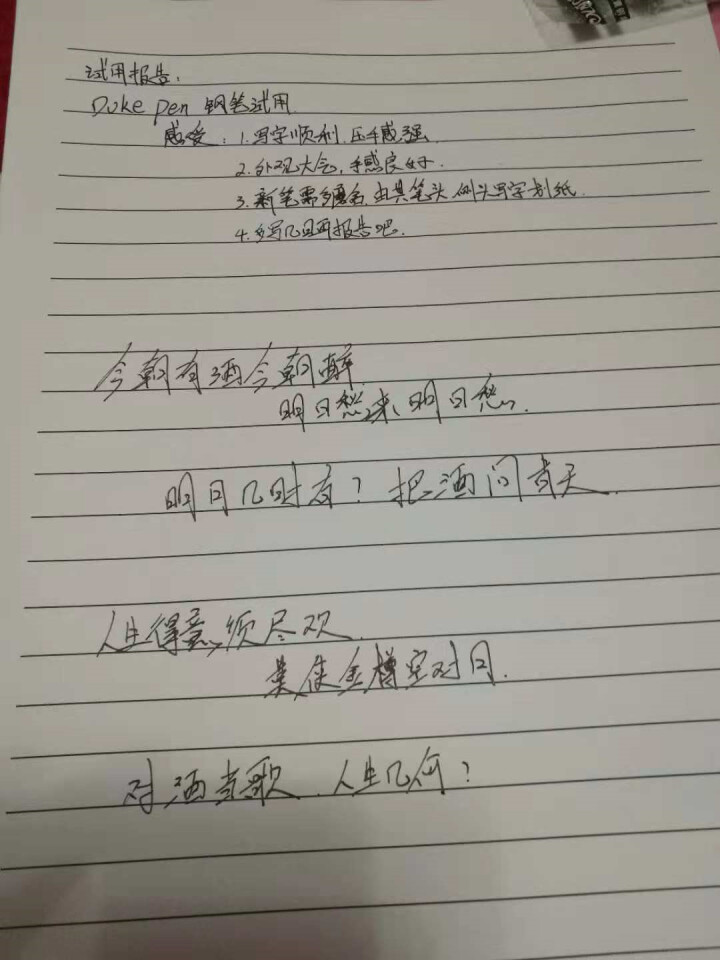 试用报告:
Duke pen 钢笔试用
感受:1.写字顺利,压手感强
2.外观大气,手感良好.
3.新笔需多磨合,尤其笔头,侧头写字划纸.
4.多写几日再报告吧.
今朝有酒今朝醉
明日愁来明日愁.
明月几时有?把酒问青天.
人生得意须尽欢.
莫使金樽空对月.
对酒当歌.人生几何?